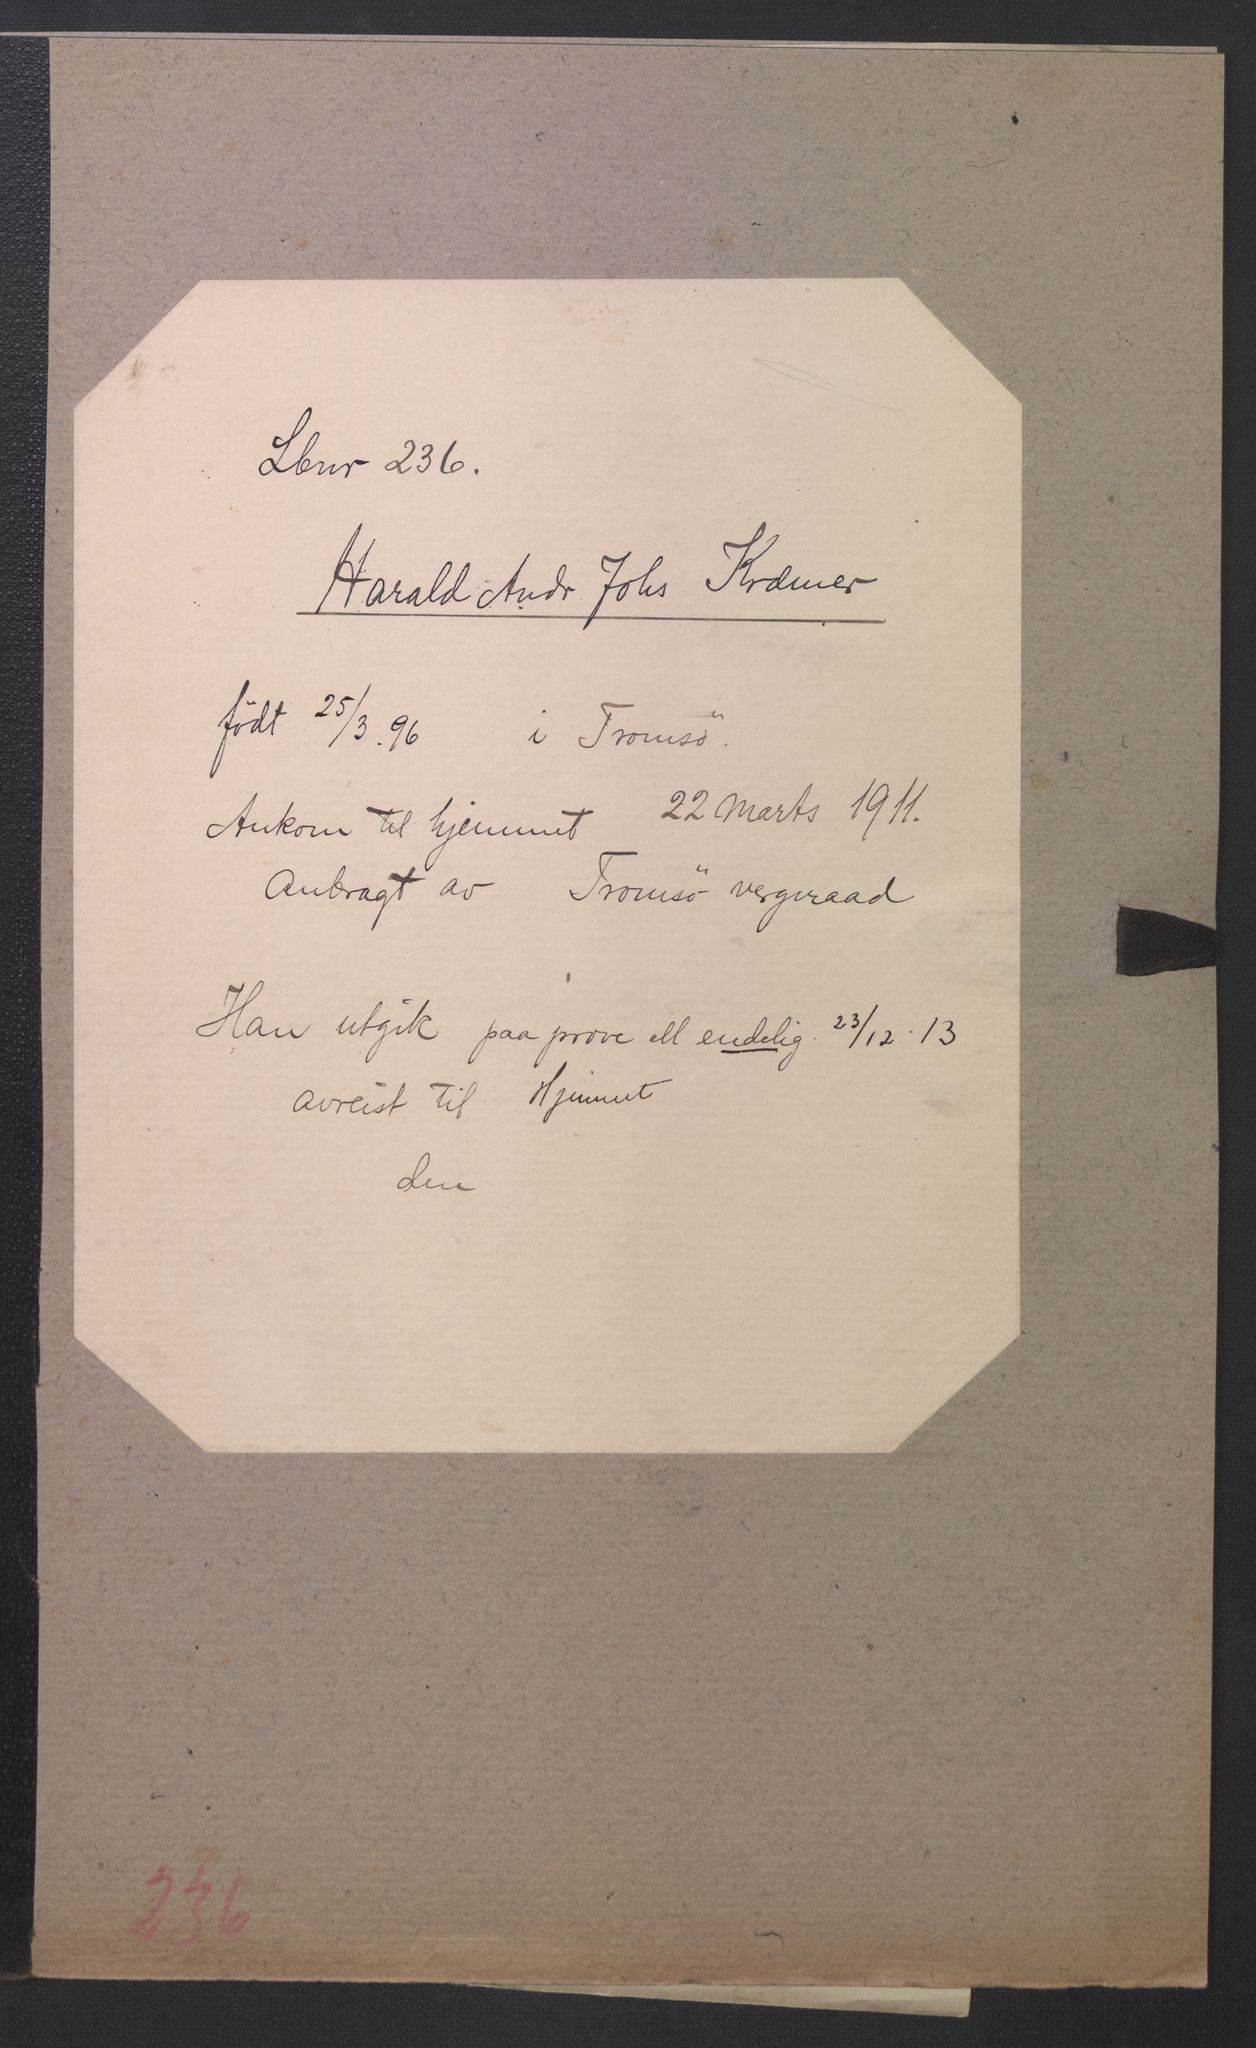 Lbnr 236.
Harald Andr. Johs Kræmer
født 25/3.96 i Tromsö.
Ankom til hjemmet 22 Marts 1911.
Anbragt av Tromsö vergeraad
Han utgik paa prøve ell endelig. 23/12.13
avreist til Hjemmet
den
236